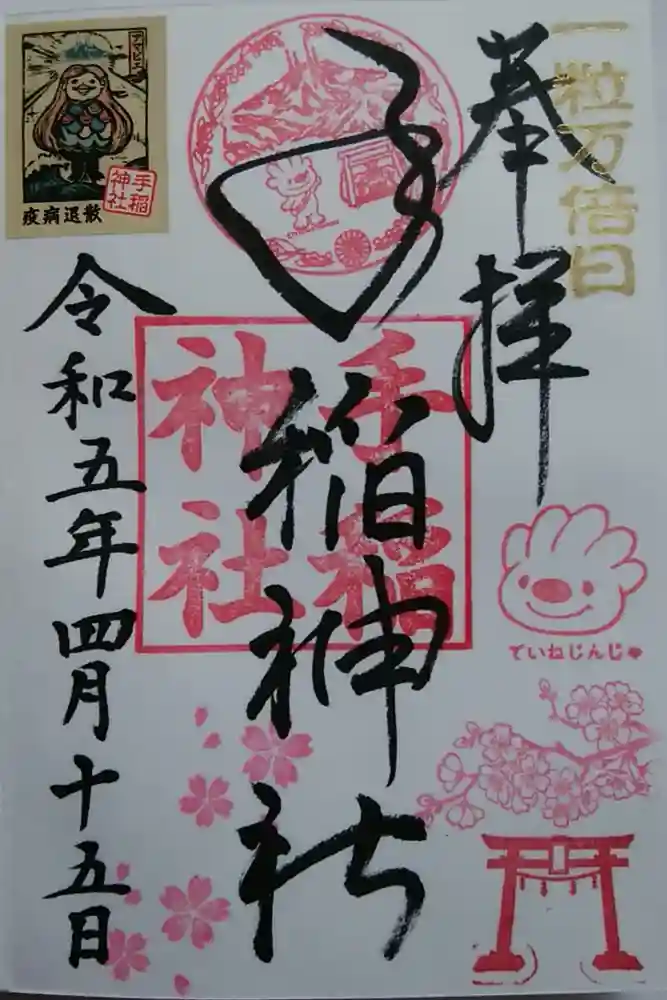 一粒万倍日
奉拝
手稲神社
手稲
神社
令和五年四月十五日
アマビエ
手稲
神社
疫病退散
ていねじんじゃ